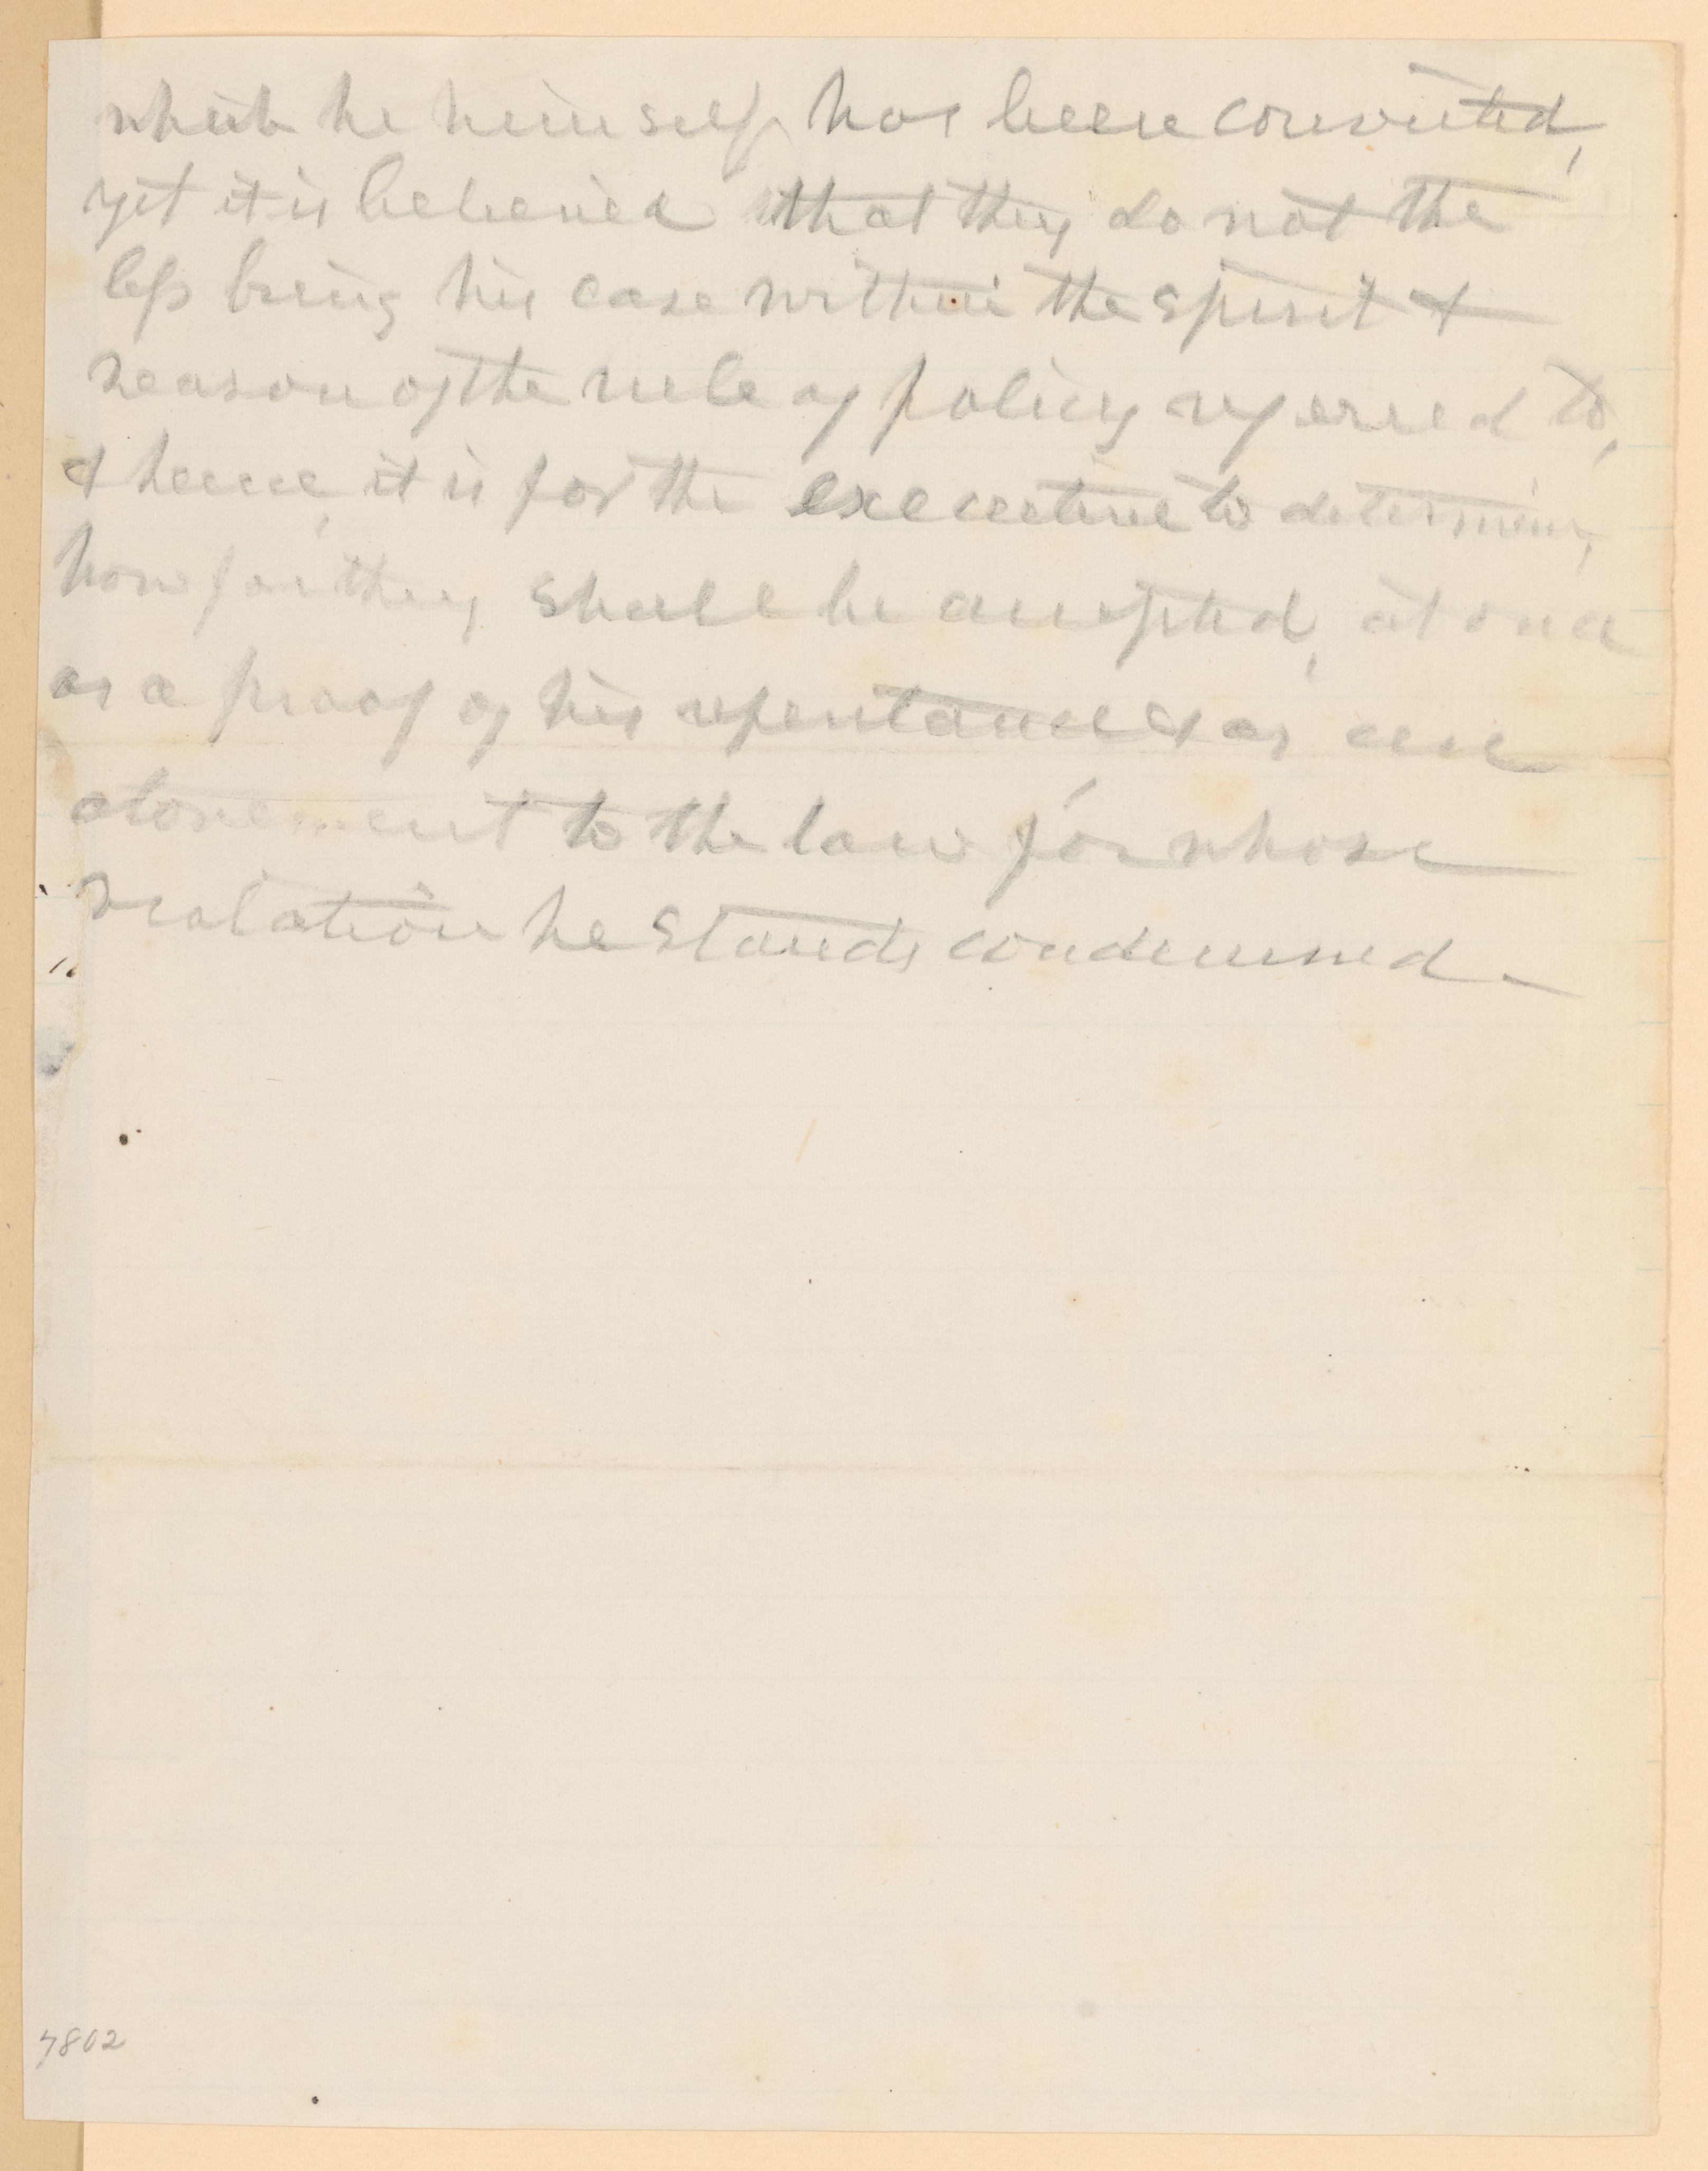 which he himself has been convicted,
yet it is believed that they do not the
less bring his case within the spirit &
reason of the rule of policy refered to,
& hence, it is for the executive to determine,
how far they shall be accepted, at once
as a proof of his repentance & as an
atonement to the law for whose
violation he stands condemned –
7802